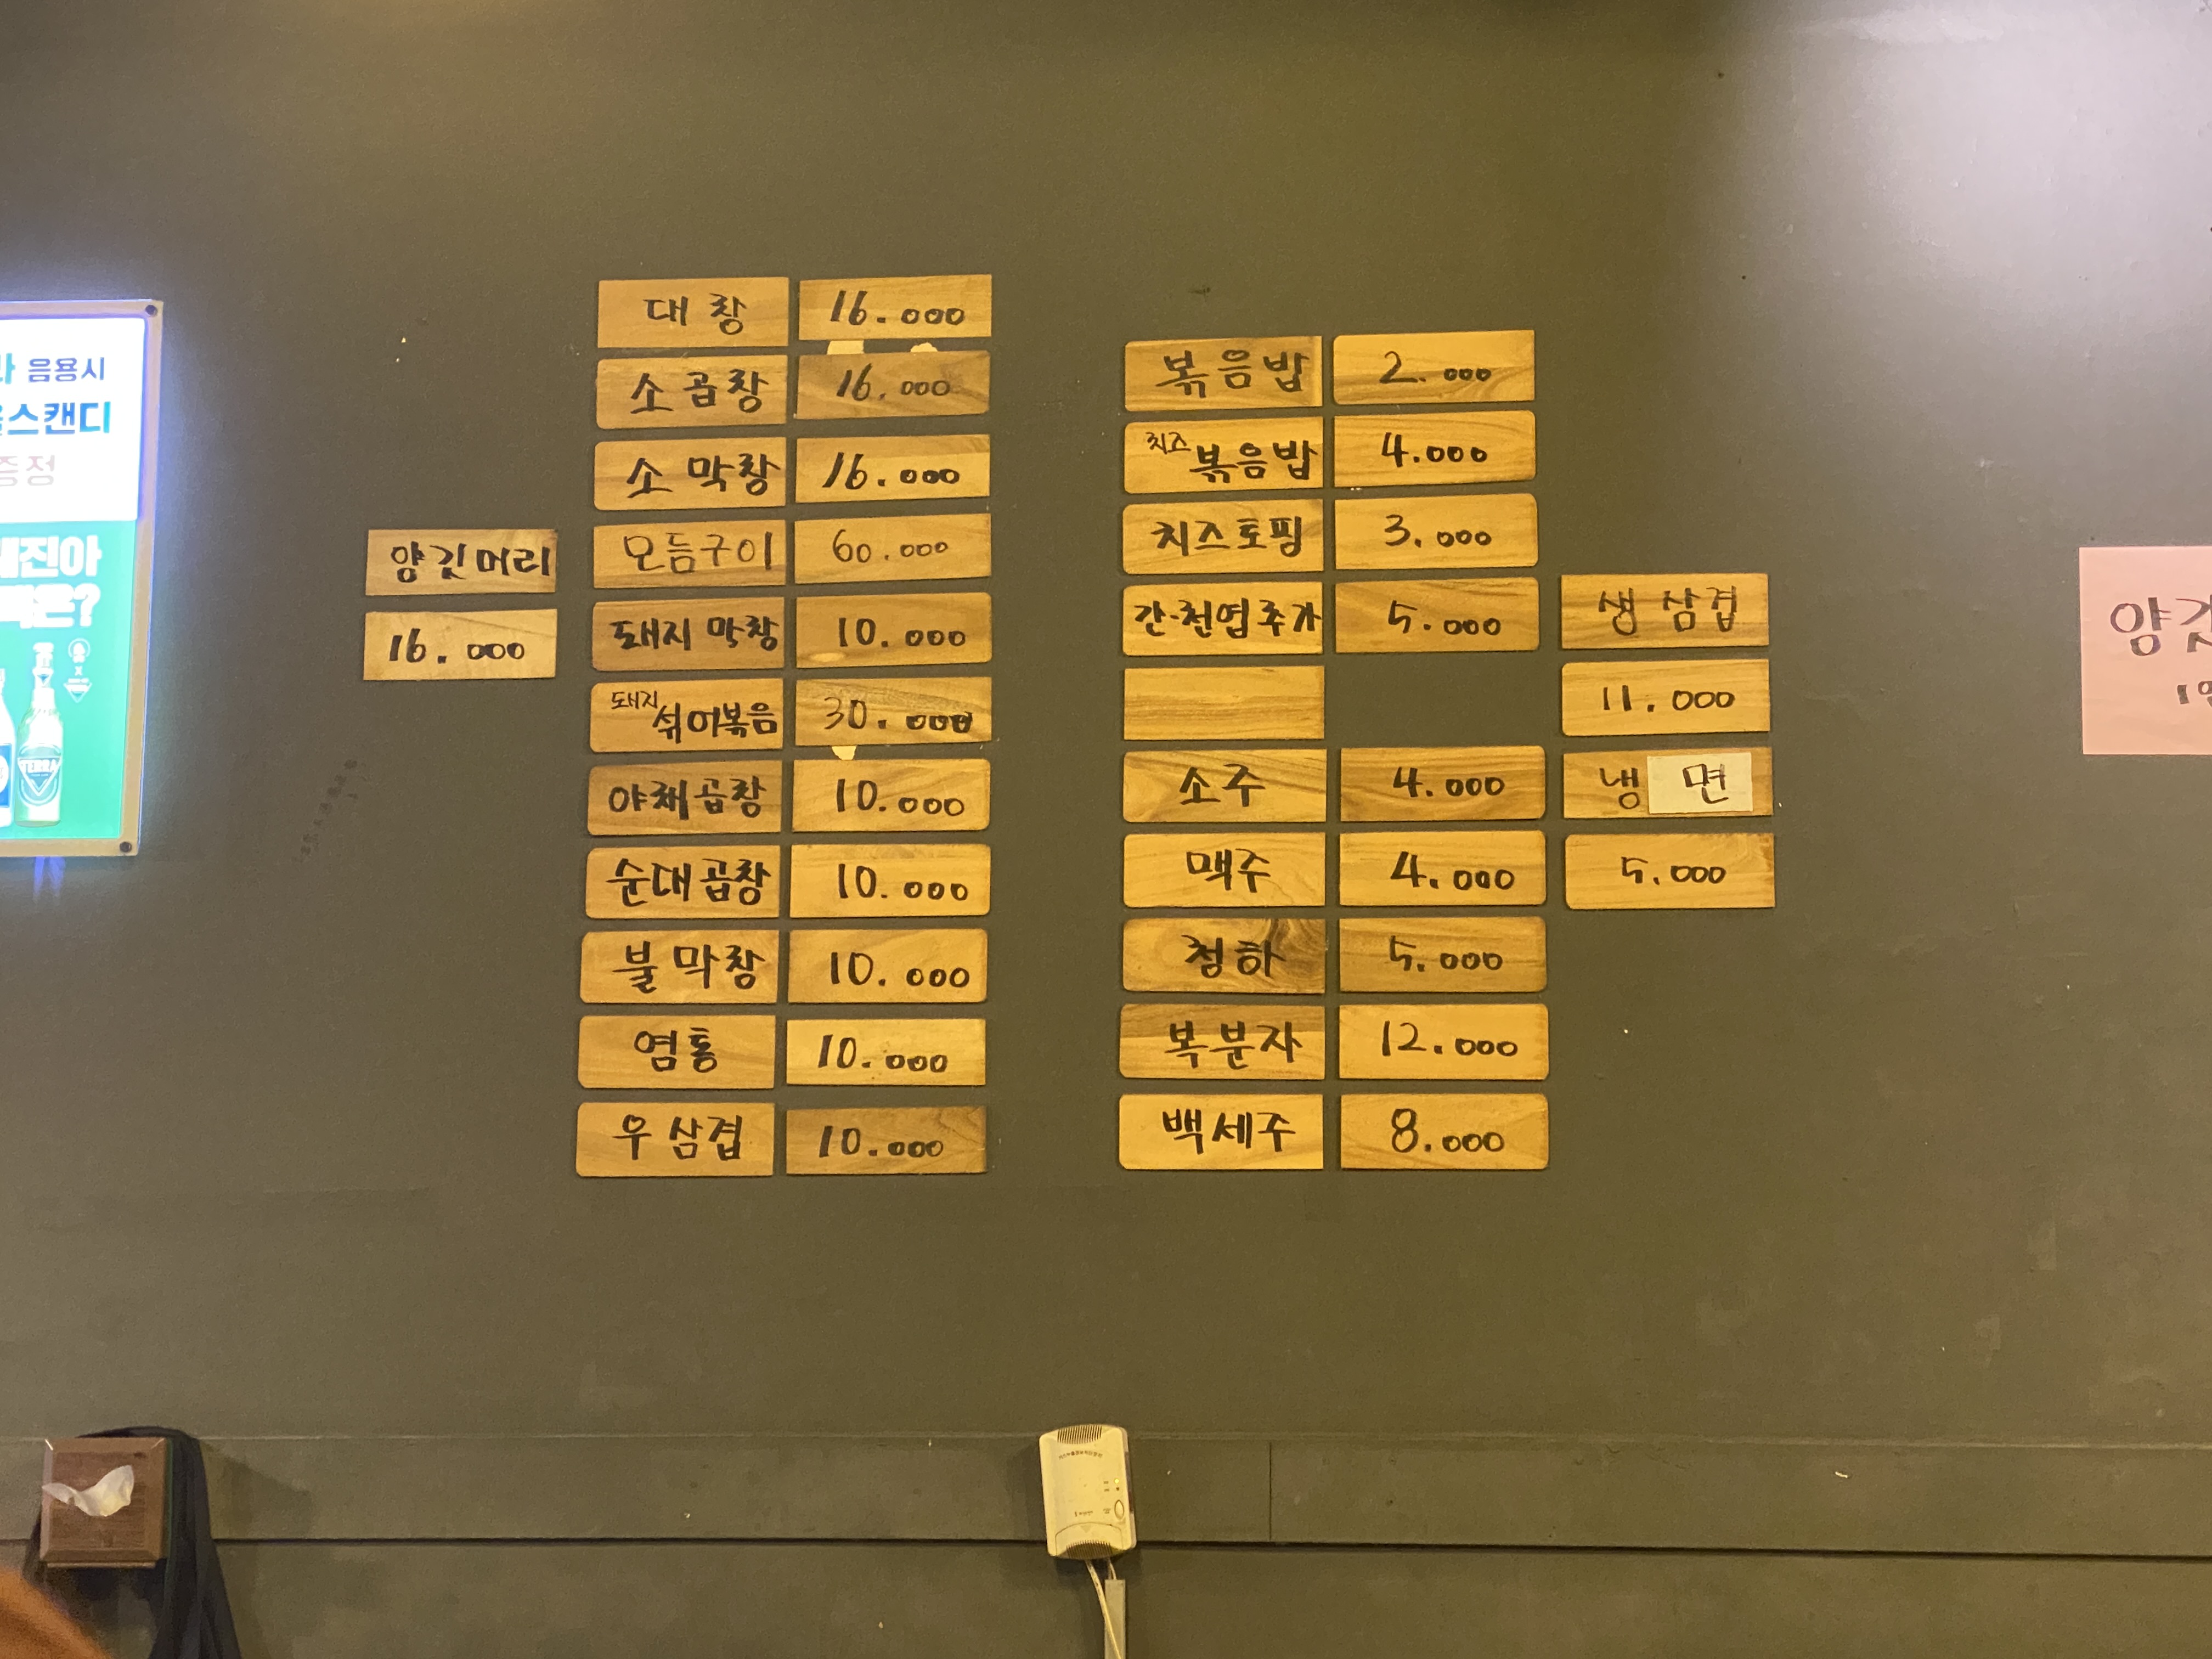 음용시
스캔디
증정
진아
은?
TERRA
양깃머리
16.000
대창 16.000
소곱창 16.000
소막창 16.000
모듬구이 60.000
돼지막창 10.000
돼지섞어볶음 30.000
야채곱창 10.000
순대곱창 10.000
불막창 10.000
염통 10.000
우삼겹 10.000
볶음밥 2.000
치즈볶음밥 4.000
치즈토핑 3.000
간·천엽추가 5.000
소주 4.000
맥주 4.000
청하 5.000
복분자 12.000
백세주 8.000
생삼겹
11.000
냉면
5.000
양깃